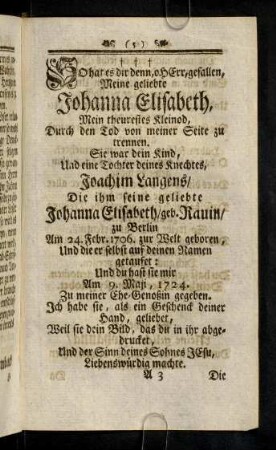 ( 5 )
† † †
SO hat es dir denn, o HErr, gefallen,
Meine geliebte
Johanna Elisabeth,
Mein theurestes Kleinod,
Durch den Tod von meiner Seite zu
trennen.
Sie war dein Kind,
Und eine Tochter deines Knechtes,
Joachim Langens/
Die ihm seine geliebte
Johanna Elisabeth/ geb. Rauin/
zu Berlin
Am 24. Febr. 1706. zur Welt geboren,
Und die er selbst auf deinen Namen
getaufet:
Und du hast sie mir
Am 9. May, 1724.
Zu meiner Ehe-Genoßin gegeben.
Ich habe sie, als ein Geschenck deiner
Hand, geliebet,
Weil sie dein Bild, das du in ihr abge-
drucket,
Und der Sinn deines Sohnes JEsu,
Liebenswürdig machte.
A 3 Die